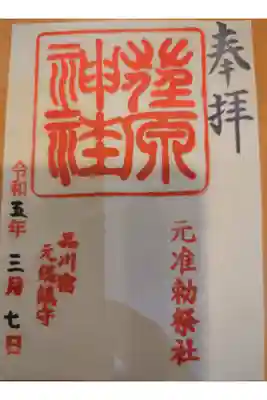 奉拝
元准勅祭社
荏原
神社
品川宿
元総鎮守
令和五年三月七日